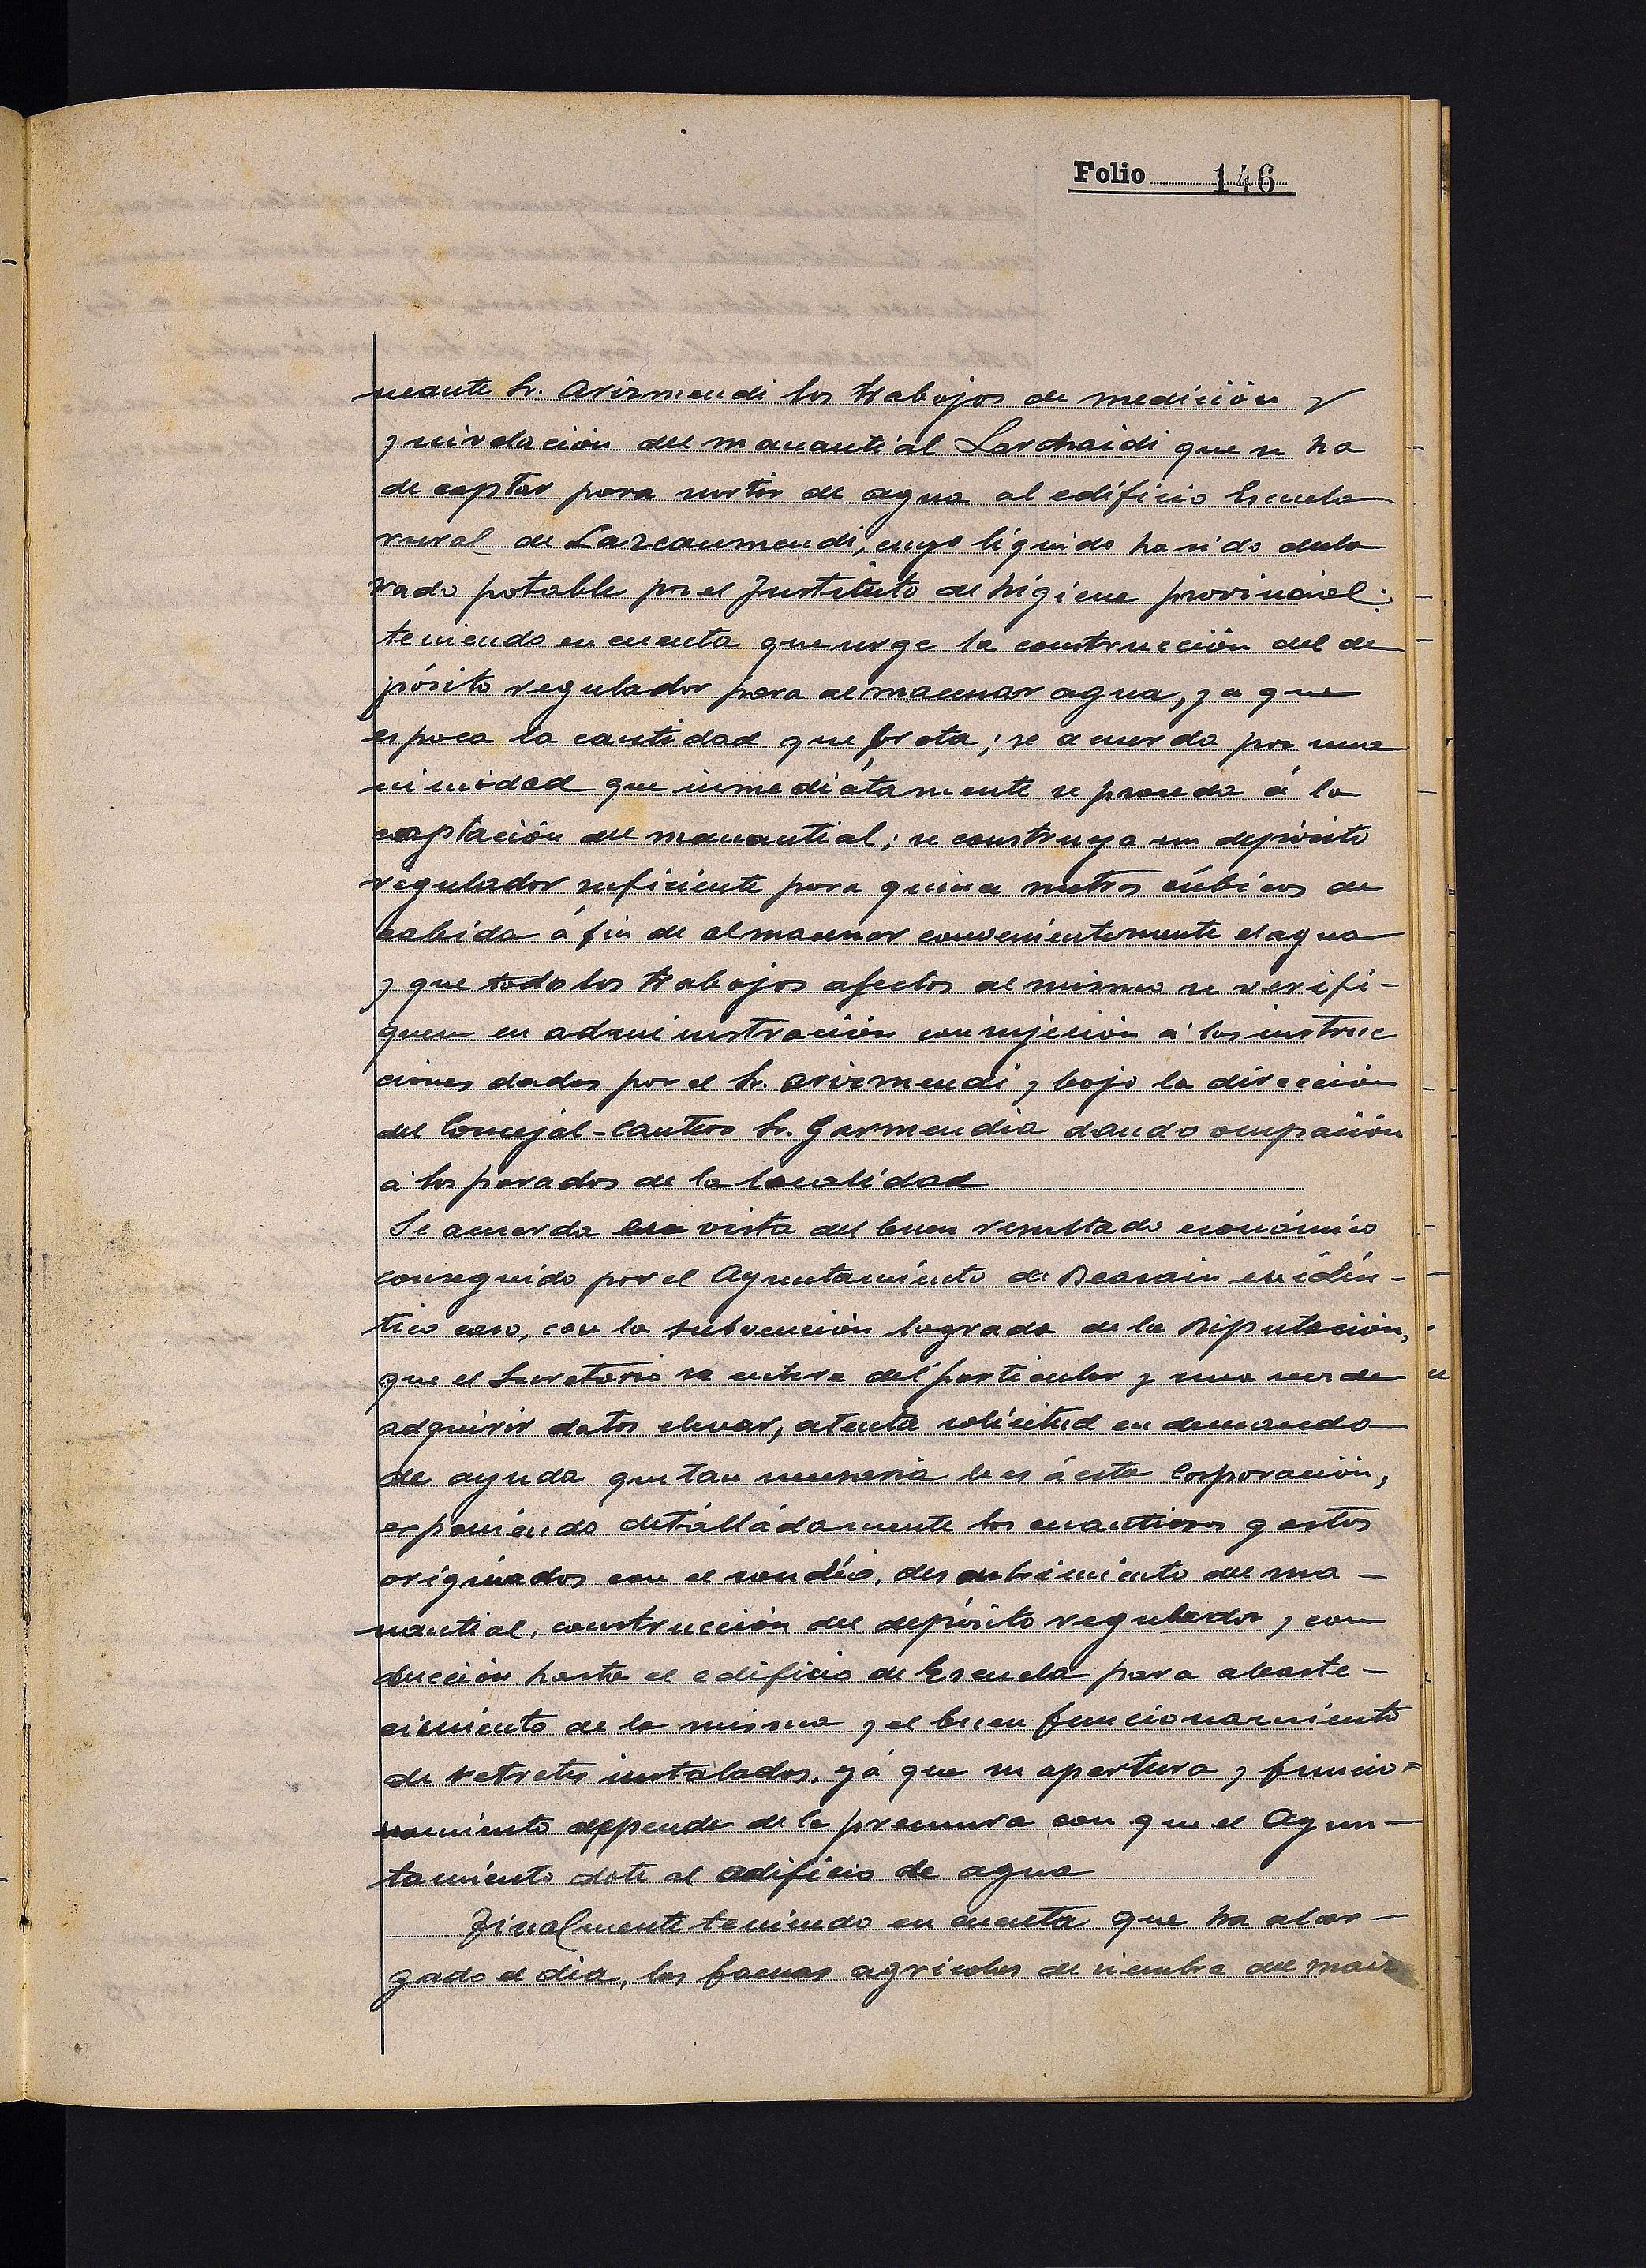 Folio 146
neante Sr. Arizmendi los trabajos de medición y
y nivelación del manantial Larchaidi que se ha
de captar para surtir de agua al edificio Escuela
rural de Lazcaumendi, cuyo líquido ha sido decla
rado potable por el Instituto de higiene provincial:
teniendo en cuenta que urge la construcción del de
pósito regulador para almacenar agua, ya que
es poca la cantidad que brota; se acuerda por una
nimidad que inmediátamente se proceda á la
captación del manantial; se construya un depósito
regulador suficiente para quince metros cúbicos de
cabida á fin de almacenar convenientemente el agua
y que todo los trabajos afectos al mismo se verifi-
quen en administración con sujeción á las instruc
ciones dadas por el Sr. Arizmendi y bajo la dirección
del Concejal-Cantero Sr. Garmendia dando ocupación
á los parados de la localidad
Se acuerda en vista del buen resultado económico
conseguido por el Ayuntamiento de Beasain en idén-
tico caso, con la subvención lograda de la Diputación,
que el Secretario se entere del particular y una vez de
adquirir datos elevar, atenta solicitud en demanda
de ayuda que tan necesaria le es á esta Corporación,
exponiendo detálládamente los cuantiosos gastos
originados con el sondéo, descubrimiento del ma-
nantial, construcción del depósito regulador y con
ducción hasta el edificio de Escuela para abaste-
cimiento de la misma y el buen funcionamiento
de retretes instalados, yá que su apertura y funcio=
namiento deppende de la premura con que el Ayun-
tamiento dote al edificio de agua
Finalmente teniendo en cuenta que ha alar-
gado el dia, las faenas agrícolas de siembra del maiz